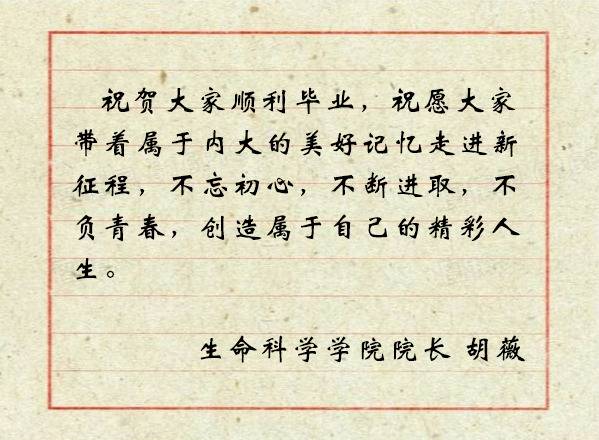 祝贺大家顺利毕业，祝愿大家
带着属于内大的美好记忆走进新
征程，不忘初心，不断进取，不
负青春，创造属于自己的精彩人
生。
生命科学学院院长 胡薇